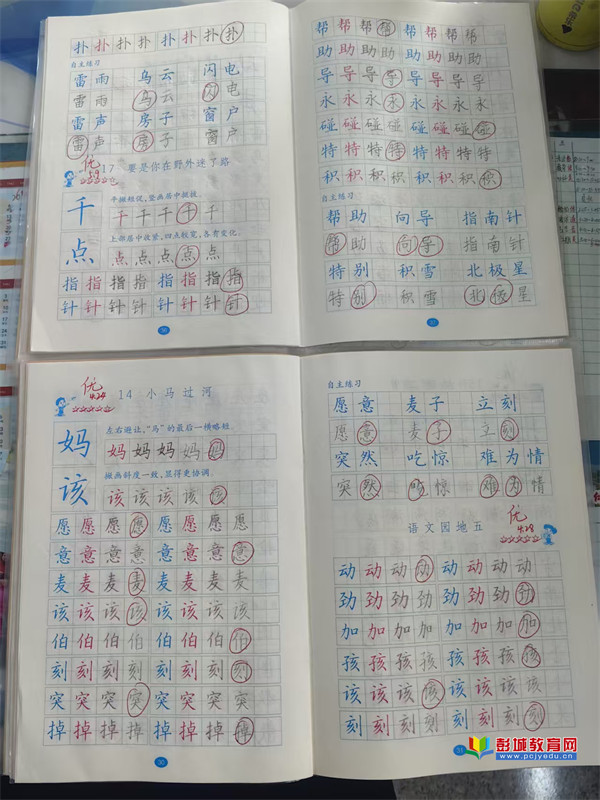 扑 扑 扑 扑 扑 扑 扑 扑
自主练习
雷雨 乌云 闪电
雷雨 乌云 闪电
雷声 房子 窗户
雷声 房子 窗户
优
17 要是你在野外迷了路
平撇短促,竖画居中挺拔。
千 千 千 千 千 千
上部居中收紧,四点较宽,各有变化。
点 点 点 点 点 点
指 指 指 指 指 指 指 指
针 针 针 针 针 针 针 针
帮 帮 帮 帮 帮 帮 帮 帮
助 助 助 助 助 助 助 助
导 导 导 导 导 导 导 导
永 永 永 永 永 永 永 永
碰 碰 碰 碰 碰 碰 碰 碰
特 特 特 特 特 特 特 特
积 积 积 积 积 积 积 积
自主练习
帮助 向导 指南针
帮助 向导 指南针
特别 积雪 北极星
特别 积雪 北极星
优
4.24
14 小马过河
左右避让,“马”的最后一横略短。
妈 妈 妈 妈 妈 妈
撇画斜度一致,显得更协调。
该 该 该 该 该 该
愿 愿 愿 愿 愿 愿 愿 愿
意 意 意 意 意 意 意 意
麦 麦 麦 麦 麦 麦 麦 麦
该 该 该 该 该 该 该 该
伯 伯 伯 伯 伯 伯 伯 伯
刻 刻 刻 刻 刻 刻 刻 刻
突 突 突 突 突 突 突 突
掉 掉 掉 掉 掉 掉 掉 掉
30
自主练习
愿意 麦子 立刻
愿意 麦子 立刻
突然 吃惊 难为情
突然 吃惊 难为情
优
语文园地五
动 动 动 动 动 动 动 动
劲 劲 劲 劲 劲 劲 劲 劲
加 加 加 加 加 加 加 加
孩 孩 孩 孩 孩 孩 孩 孩
该 该 该 该 该 该 该 该
刻 刻 刻 刻 刻 刻 刻 刻
31
彭城教育网
www.pcjyedu.cn